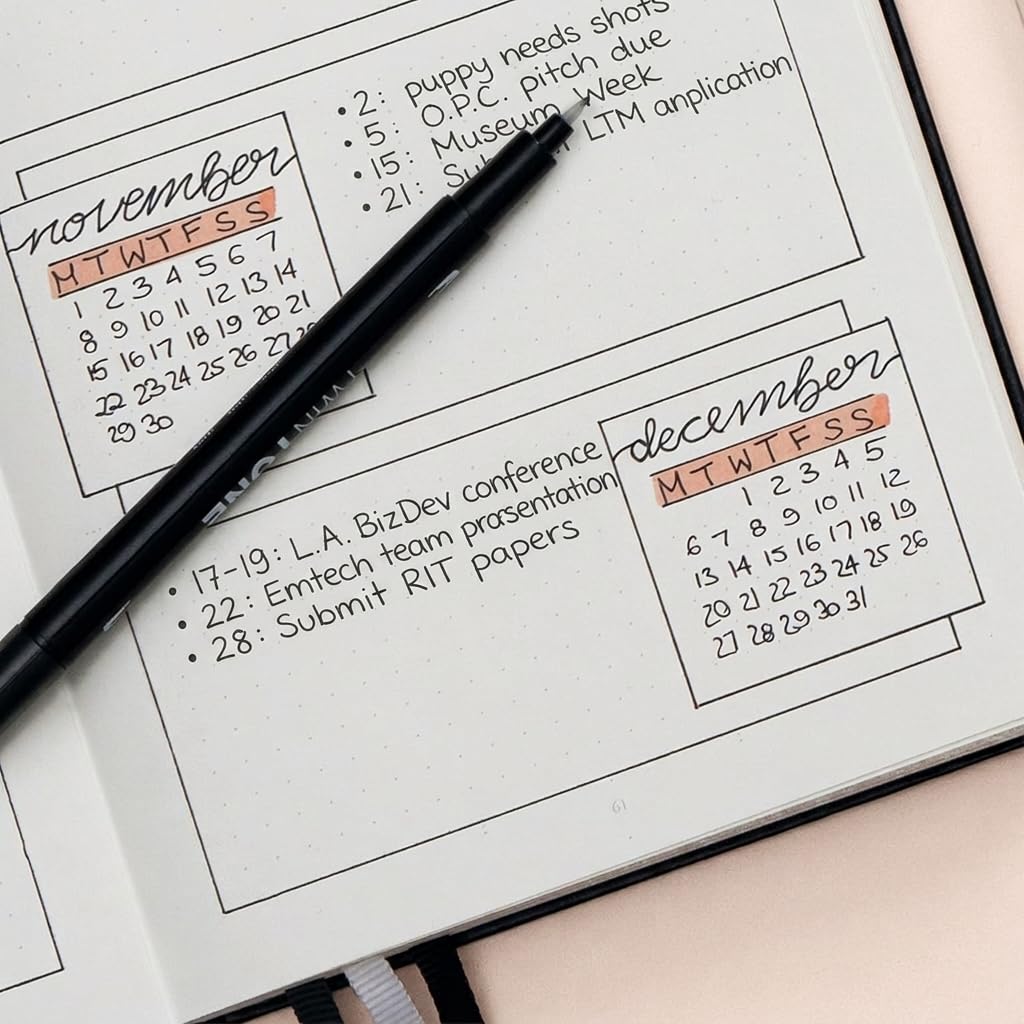 • 2: puppy needs shots
• 5: O.P.C. pitch due
• 15: Museum Week
• 21: LTM anplication
november
M T W T F S S
1 2 3 4 5 6 7
8 9 10 11 12 13 14
15 16 17 18 19 20 21
22 23 24 25 26 27
29 30
TWIN TONE
december
M T W T F S S
1 2 3 4 5
6 7 8 9 10 11 12
13 14 15 16 17 18 19
20 21 22 23 24 25 26
27 28 29 30 31
• 17-19: L.A. BizDev conference
• 22: Emtech team prasentation
• 28: Submit RIT papers
61